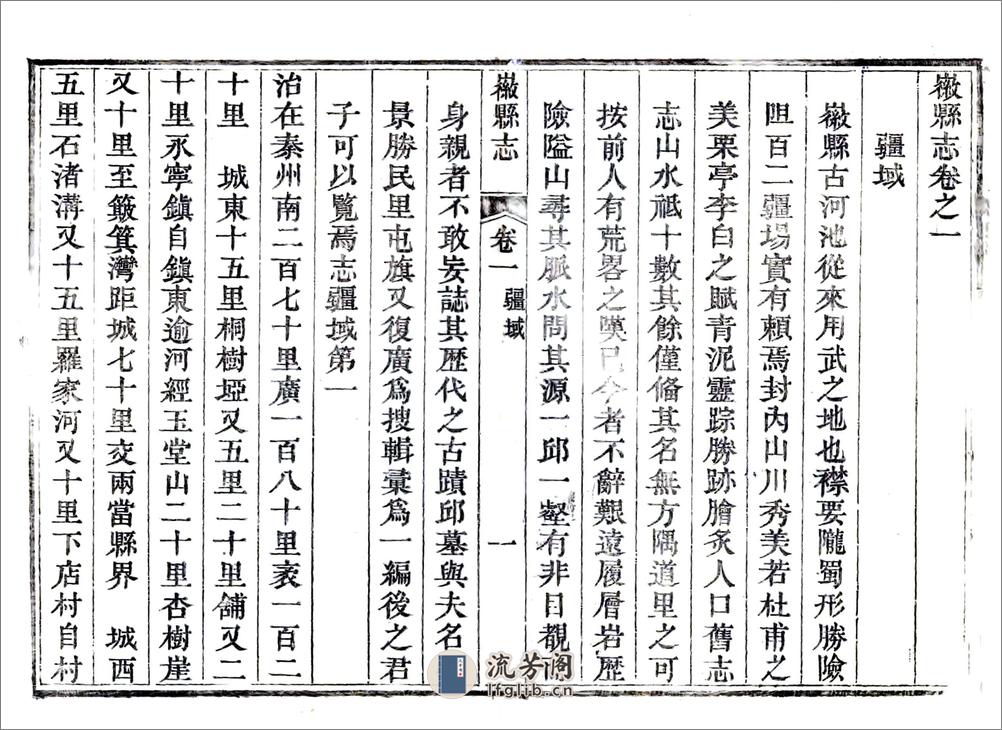 徽縣志卷之一
疆域
徽縣古河池從來用武之地也襟要隴蜀形勝險
阻百二疆場實有頼焉封內山川秀美若杜甫之
美栗亭李白之賦青泥靈踪勝跡膾炙人口舊志
志山水祗十數其餘僅俻其名無方隅道里之可
按前人有荒畧之嘆已今者不辭艱遠履層岩歷
險隘山尋其脈水問其源一邱一壑有非目覩
徽縣志 卷一 疆域 一
身親者不敢妄誌其歷代之古蹟邱墓與夫名
景勝民里屯旗又復廣爲搜輯彙爲一編後之君
子可以覽焉志疆域第一
治在秦州南二百七十里廣一百八十里袤一百二
十里 城東十五里桐樹埡又五里二十里舖又二
十里永寧鎮自鎮東逾河經玉堂山二十里杏樹崖
又十里至簸箕灣距城七十里交兩當縣界 城西
五里石渚溝又十五里羅家河又十里下店村自村
流芳阁
lfglib.cn